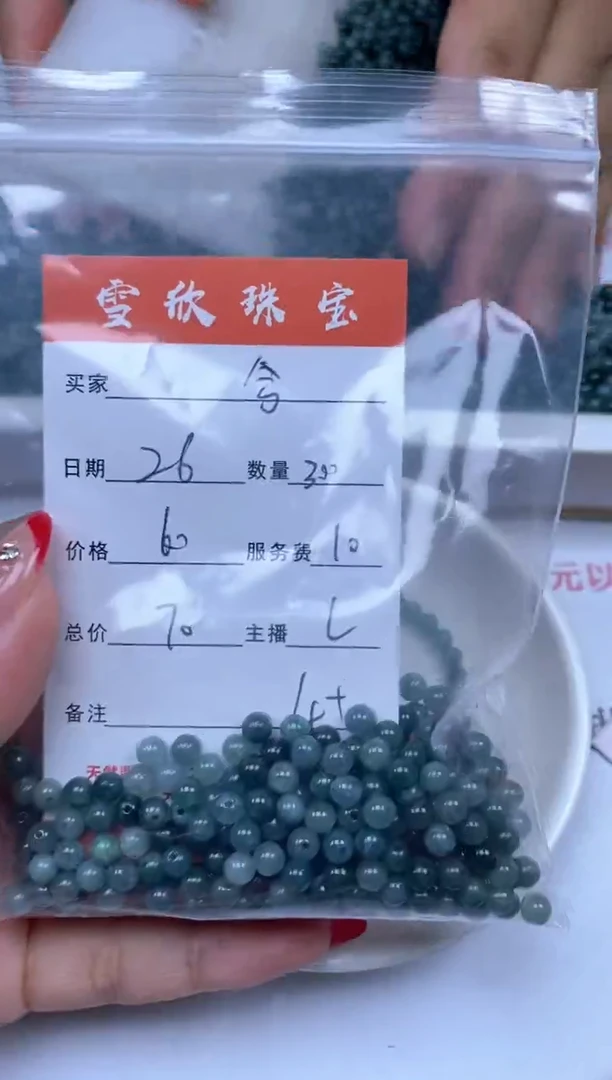 雪欣珠宝
买家
日期 26 数量 300
价格 60 服务费 10
总价 70 主播 L
备注
天然
元以